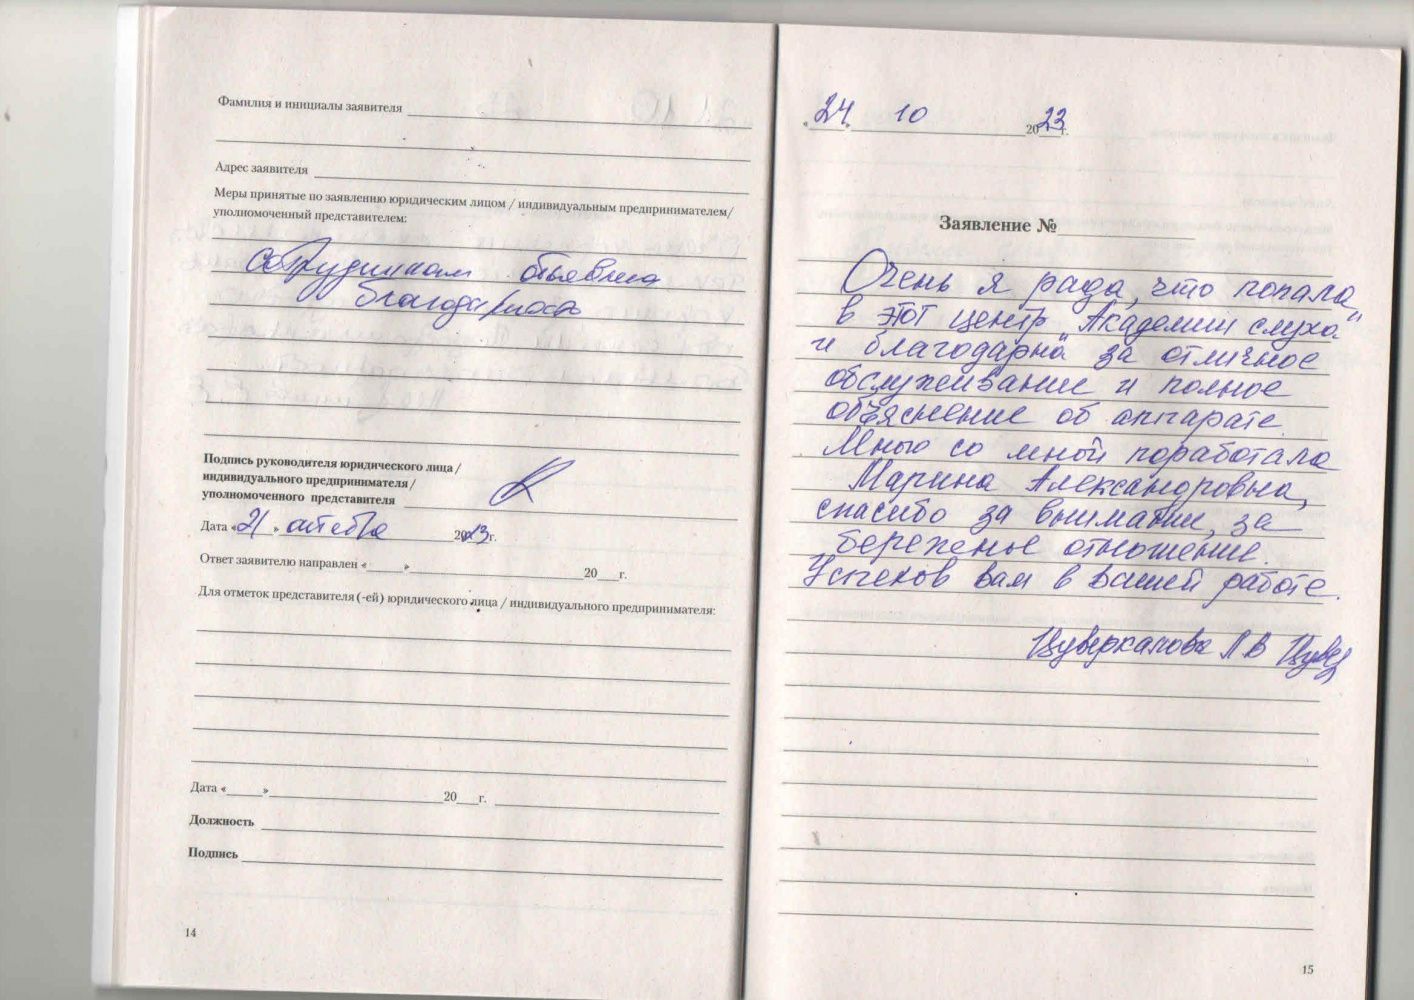 Фамилия и инициалы заявителя
Адрес заявителя
Меры принятые по заявлению юридическим лицом / индивидуальным предпринимателем/
уполномоченный представителем:
Сотрудникам объявлена
благодарность
Подпись руководителя юридического лица /
индивидуального предпринимателя /
уполномоченного представителя
Дата «21» октября 2023г.
Ответ заявителю направлен «____»____ 20___г.
Для отметок представителя (-ей) юридического лица / индивидуального предпринимателя:
Дата «____»____ 20___г.
Должность
Подпись
14
«24» 10 2023г.
Заявление №
Очень я рада, что попала
в этот центр „Академии слуха"
и благодарна за отличное
обслуживание и полное
объяснение об аппарате.
Мною со мной поработала
Марина Александровна,
спасибо за внимание, за
береженье отношение.
Успехов вам в вашей работе.
Л В
15